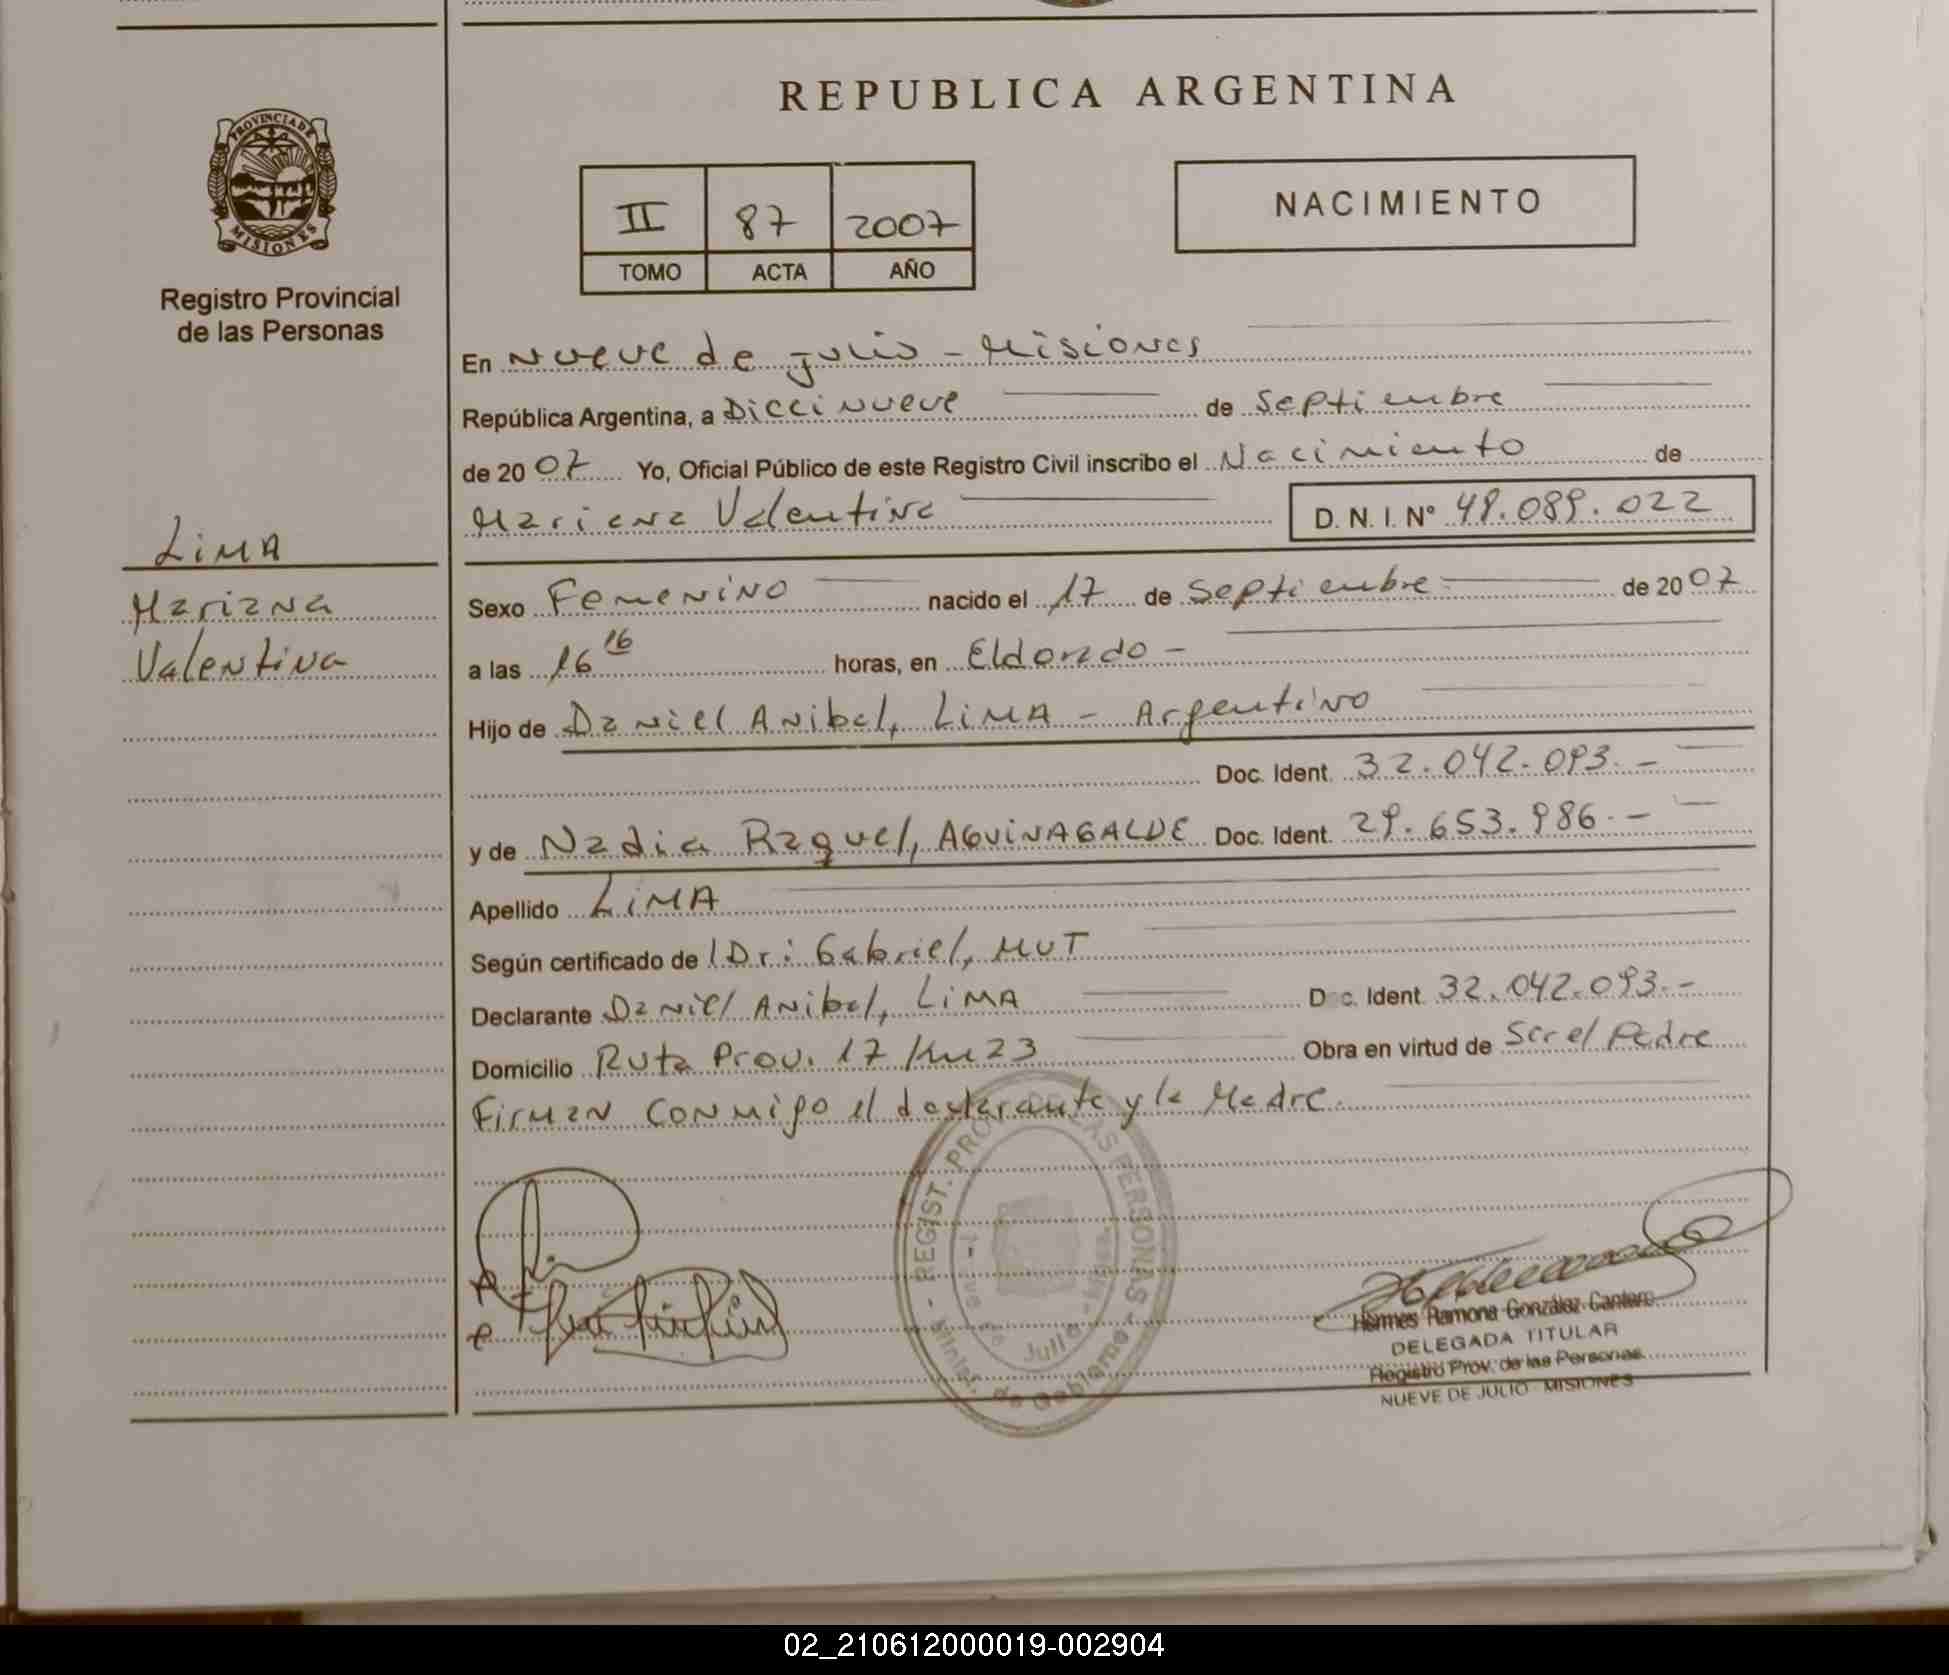 REPUBLICA ARGENTINA
PROVINCIA DE
MISIONES
Registro Provincial
de las Personas
II 87 2007
TOMO ACTA AÑO
NACIMIENTO
En Nueve de Julio - Misiones
República Argentina, a Diecinueve de Septiembre
de 2007 Yo, Oficial Público de este Registro Civil inscribo el Nacimiento de
Mariana Valentina D. N. I. N° 48.089.022
LIMA
Mariana
Valentina
Sexo Femenino nacido el 17 de Septiembre de 2007
a las 16 16 horas, en Eldorado -
Hijo de Daniel Anibal, LIMA - Argentino
Doc. Ident. 32.042.093.-
y de Nadia Raquel, AGUINAGALDE Doc. Ident. 29.653.986.-
Apellido LIMA
Según certificado de Dr: Gabriel, MUT
Declarante Daniel Anibal, LIMA Doc. Ident. 32.042.093.-
Domicilio Ruta Prov. 17 Km 23 Obra en virtud de Ser el Padre
Firman conmigo el declarante y la Madre.
REGIST. PROV. DE LAS PERSONAS
Minist. de Gobierno
Julio
Hermes Ramona González Cantero
DELEGADA TITULAR
Registro Prov. de las Personas
NUEVE DE JULIO - MISIONES
02_210612000019-002904